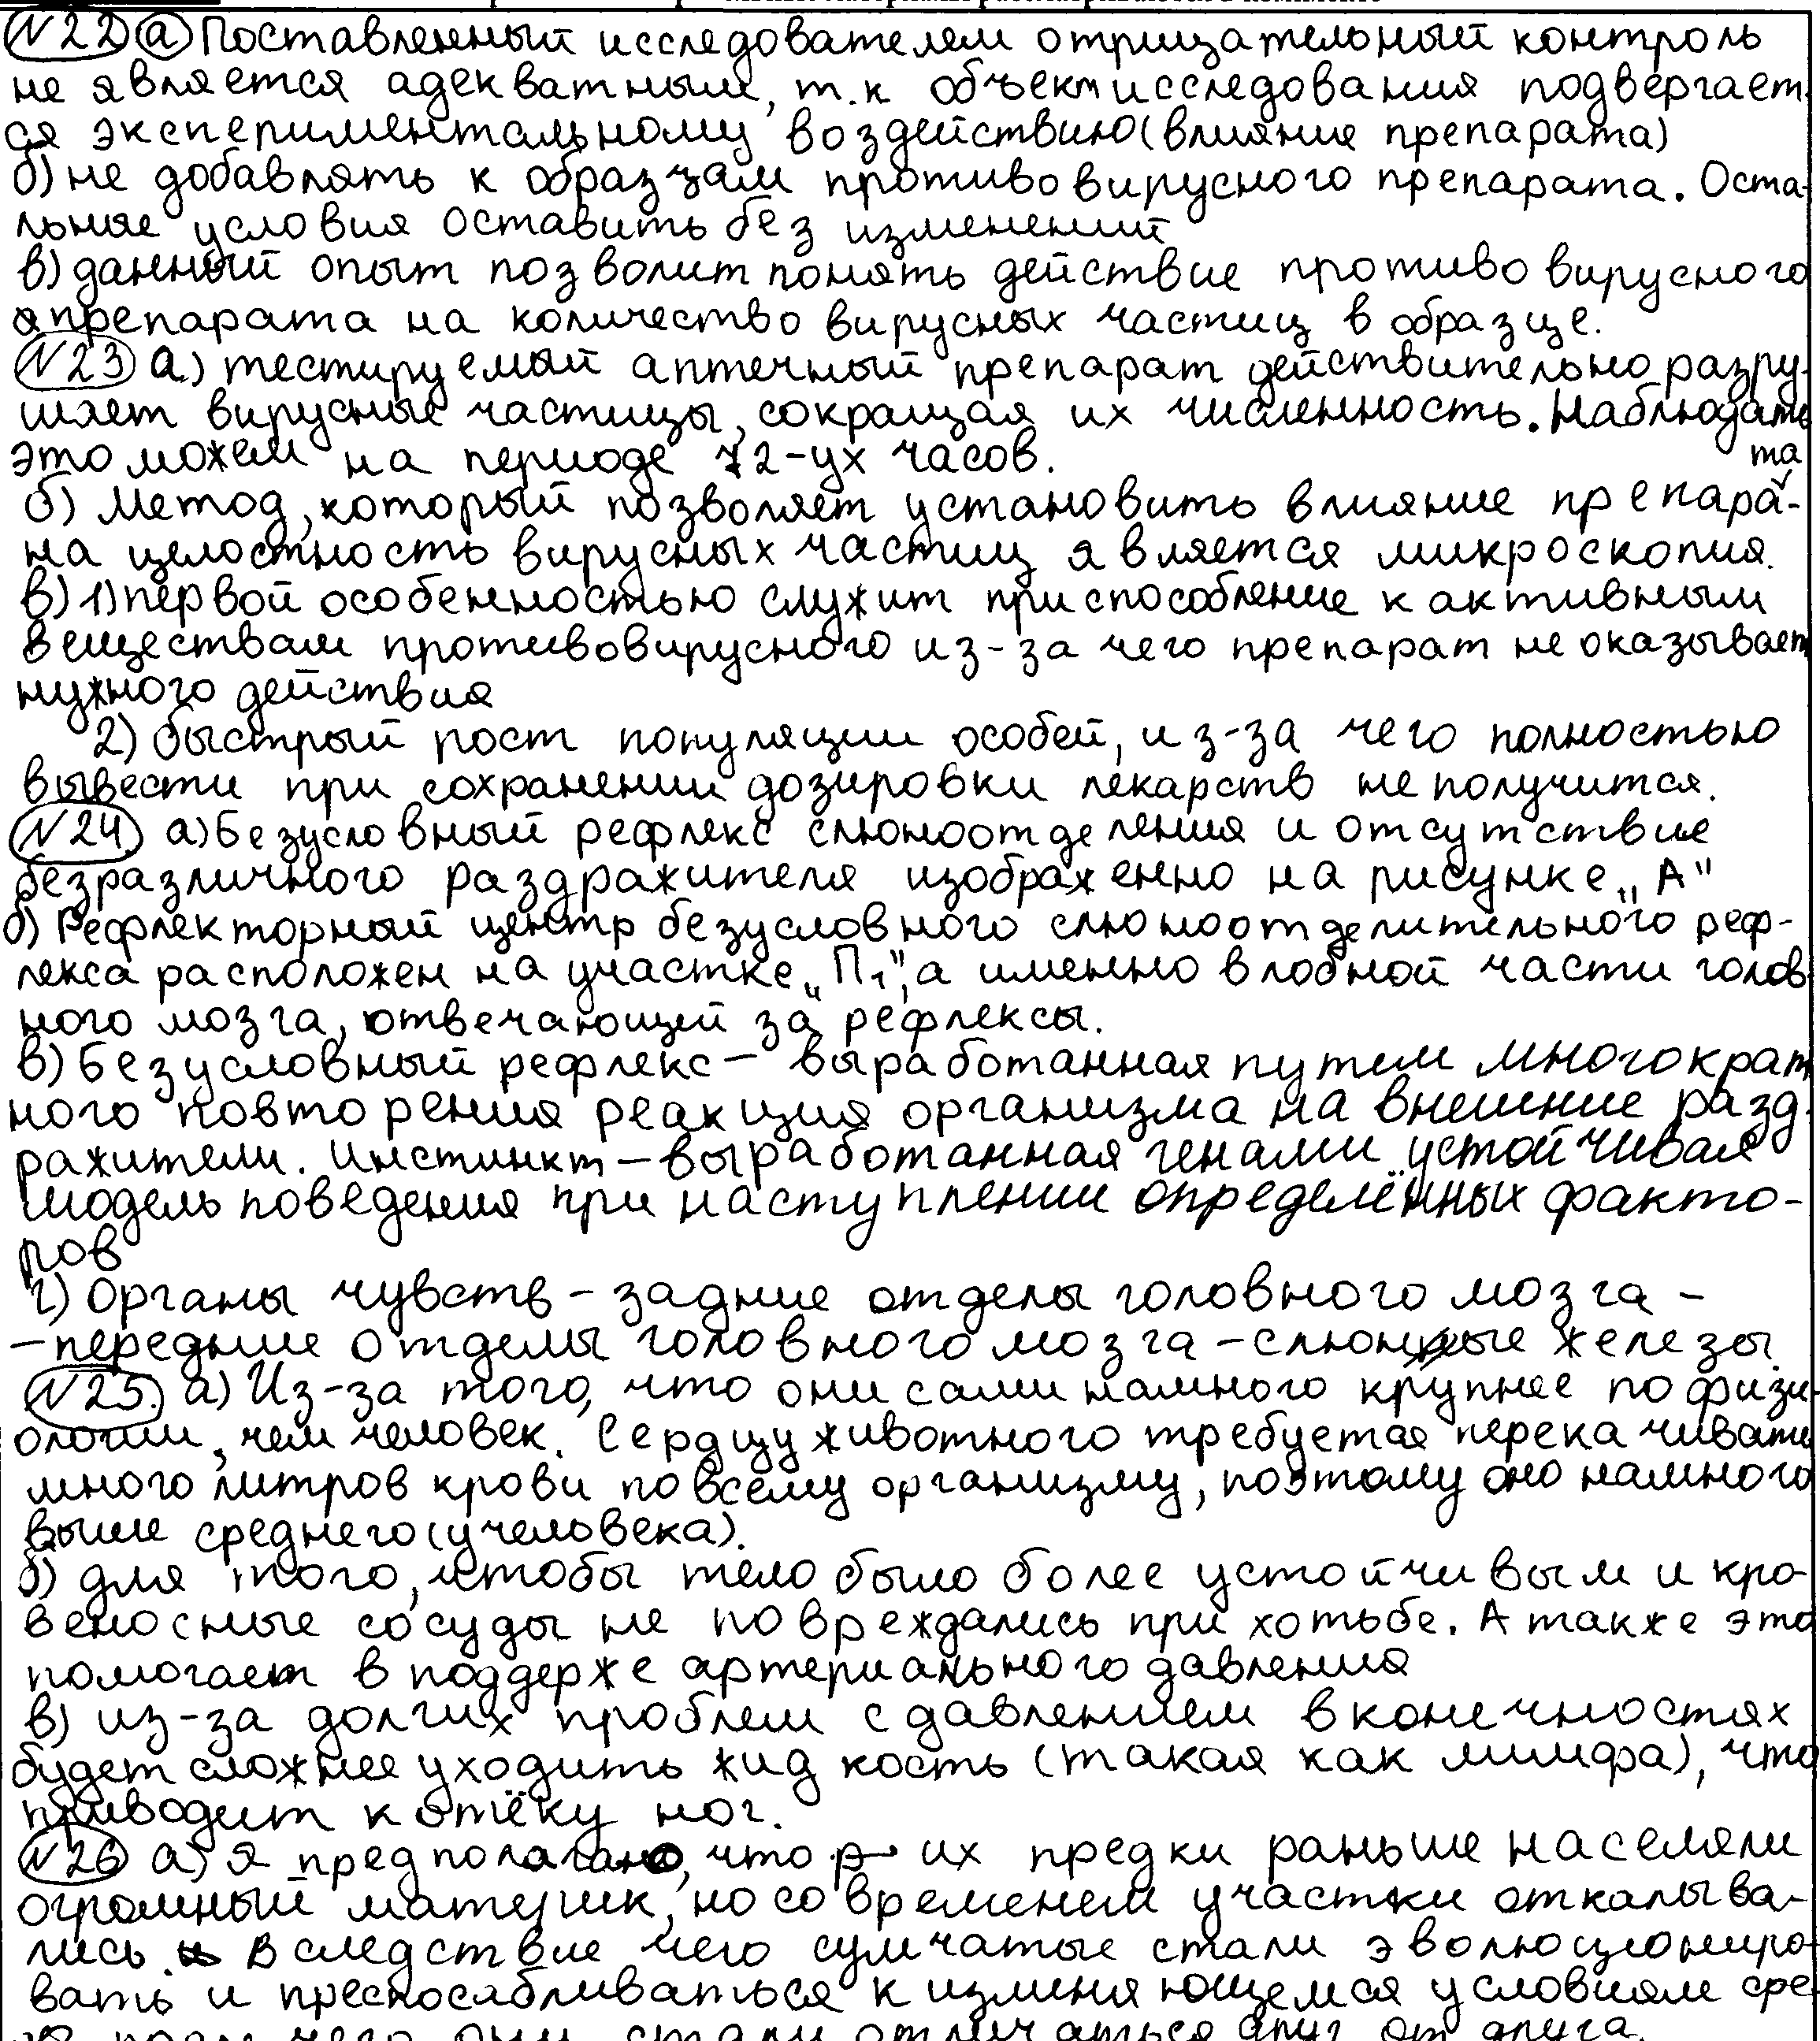 N22 а) Поставленный исследователем отрицательный контроль
не является адекватным, т.к объект исследования подвергает-
ся экспериментальному воздействию (влияние препарата)
б) не добавлять к образцам противовирусного препарата. Оста-
льные условия оставить без изменений
в) данный опыт позволит понять действие противовирусного
препарата на количество вирусных частиц в образце.
N23 а) тестируемый аптечный препарат действительно разру-
шает вирусные частицы, сокращая их численность. Наблюдать
это можем на периоде 72-ух часов.
б) Метод, который позволяет установить влияние препара-та
на целостность вирусных частиц является микроскопия.
в) 1) первой особенностью служит приспособление к активным
веществам противовирусного из-за чего препарат не оказывает
нужного действия
2) быстрый рост популяции особей, из-за чего полностью
вывести при сохранении дозировки лекарств не получится.
N24. а) Безусловный рефлекс слюноотделения и отсутствие
безразличного раздражителя изображенно на рисунке „А"
б) Рефлекторный центр безусловного слюноотделительного реф-
лекса расположен на участке „П1", а именно в лобной части голов-
ного мозга, отвечающей за рефлексы.
в) Безусловный рефлекс – выработанная путем многократ
ного повторения реакция организма на внешние разд-
ражители. Инстинкт – выработанная генами устойчивая
модель поведения при наступлении определённых факто-
ров
г) Органы чувств – задние отделы головного мозга –
– передние отделы головного мозга – слюнные железы.
N25. а) Из-за того, что они сами намного крупнее по физи-
ологии, чем человек. Сердцу животного требуется перекачивать
много литров крови по всему организму, поэтому оно намного
выше среднего (у человека).
б) для того, чтобы тело было более устойчивым и кро-
веносные сосуды не повреждались при хотьбе. А также это
помогает в поддерже артериального давления
в) из-за долгих проблем с давлением в конечностях
будет сложнее уходить жидкость (такая как лимфа), что
приводит к отёку ног.
N26 а) Я предполагаю, что их предки раньше населяли
огромный материк, но со временем участки откалыва-
лись. Вследствие чего сумчатые стали эволюциониро-
вать и преспосабливаться к изменяющемся условиям сре-
после чего они стали отличаться друг от друга.